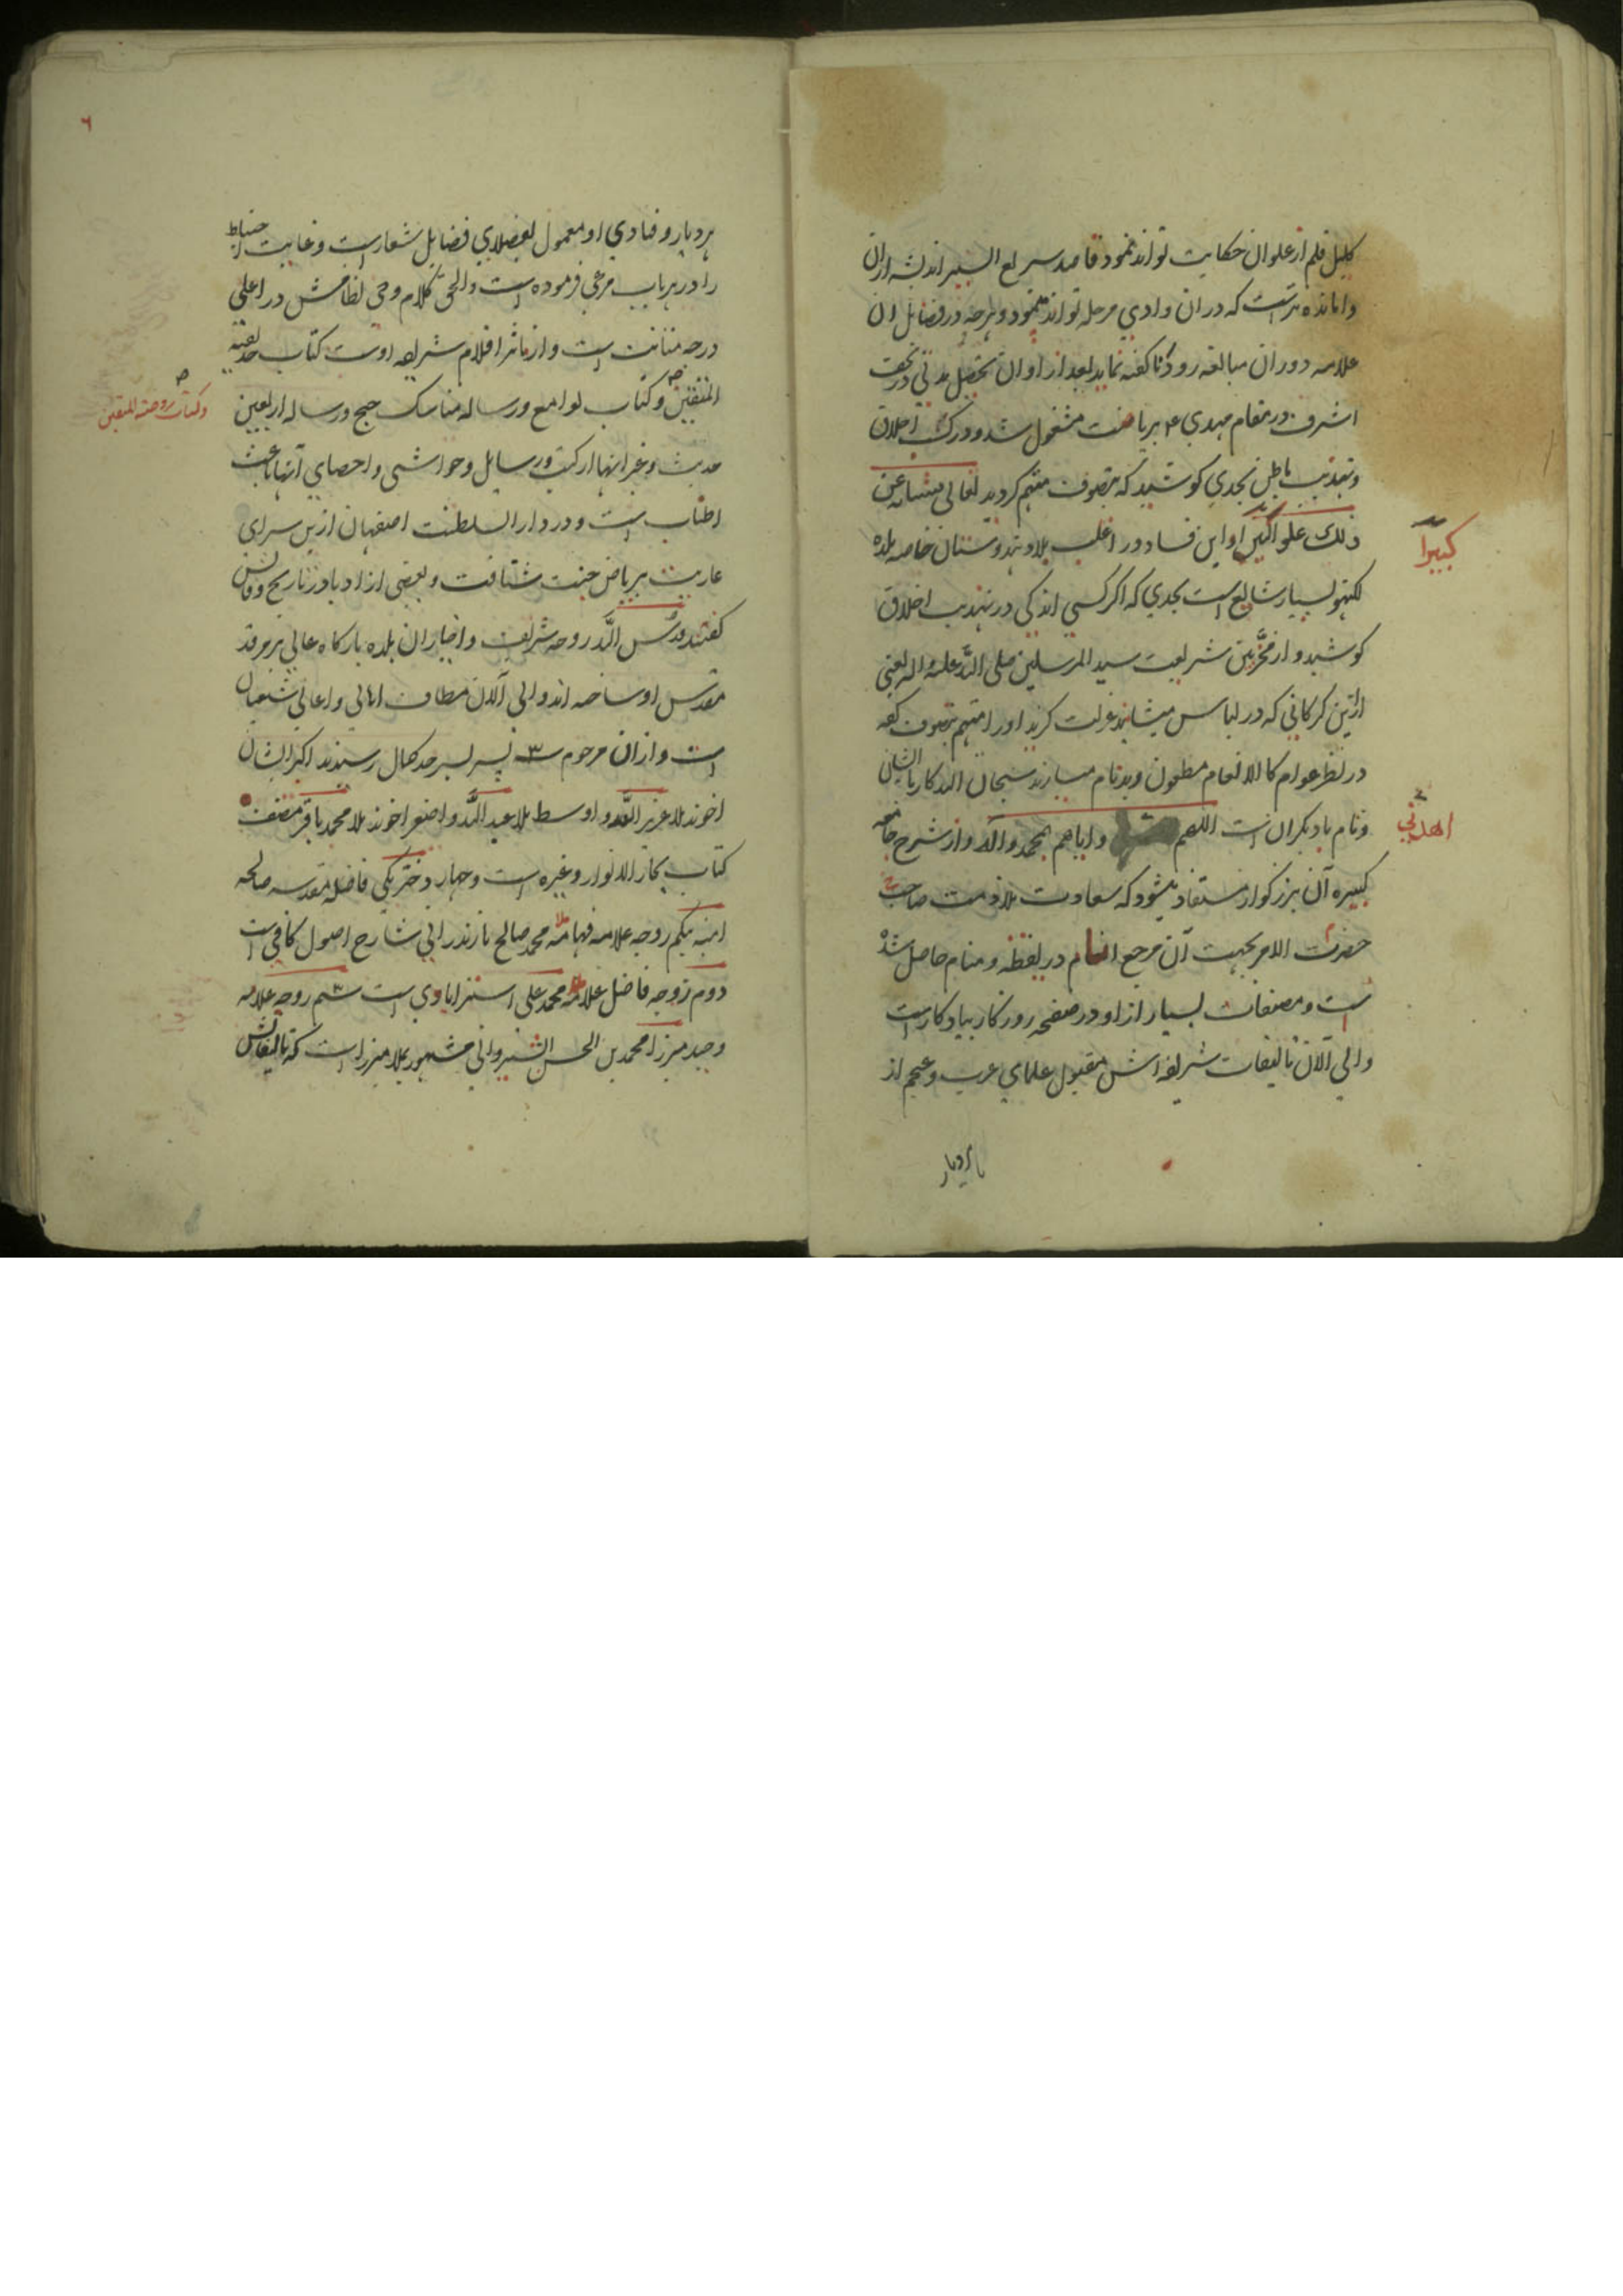 کلیل قلم از علو ان حکایت تواند نمود قاصد سریع السیر اندیشه ازان
وامانده تر است که در ان وادي مرحله تواند پیمود و هر چه در فضایل ان
علامه دوران مبالغه رود ناگفته نماید بعد از اوان تحصیل مدتی در نجف
اشرف در مقام مهدی ع بریاضت مشغول شد و در ترک اخلاق
و تهذیب باطن بحدي کوشید که بتصوف متهم گردید تعالی شانه عن
ذلک علوا او این فساد در اغلب بلاد هندوستان خاصه بلده
کبیرا
لکهنو بسیار شایع است بحدي که اگر کسی اندکی در تهذیب اخلاق
کوشید و از مخربین شریعت سید المرسلین صلی الله علیه و اله یعنی
ازین گرگانی که در لباس میشانند عزلت گزید او را متهم بتصوف گفته
در نظر عوام کالانعام مطعون و بدنام میسازند سبحان الله کار با ایشان
و نام با دیگران است اللهم و ایاهم بمحمد و اله و از شرح جامعه
اهدنی
کبیره آن بزرگوار مستفاد میشود که سعادت ملازمت صاحب
حضرت الامر بجهت آن مرجع انام در یقظه و منام حاصل شده
است و مصنفات بسیار از او در صفحه روزگار بیادگار است
والی الآن تالیفات شریفه اش مقبول علمای عرب و عجم از
هر دیار
٦
هر دیار و فتاوي او معمول بفضلاي فضایل شعار است و غایت احتیاط
را در هر باب مرعی فرموده است والحق کلام وحی نظامش در اعلی
درجه متانت است و از ماثر اقلام شریفه اوست کتاب حدیقة
المتقین و کتاب لوامع و رساله مناسک حج و رساله اربعین
و کتاب روضة المتقین
حدیث و غیر اینها از کتب و رسایل و حواشی و احصاي آنها باعث
اطناب است و در دار السلطنت اصفهان ازین سرای
عاریت بریاض جنت شتافت و بعضی از ادبا در تاریخ وفاتش
گفتند قدس الله روحه شریف و اخیار ان بلده بارگاه عالی بر مرقد
مقدس او ساخته اند والی آلان مطاف اهالی و اعالی شیعیان
است و ازان مرحوم ۳ پسر بسر حد کمال رسیدند اکبر ایشان
اخوند ملا عزیز الله و اوسط ملا عبد الله و اصغر اخوند ملا محمد باقر مصنف
کتاب بحار الانوار و غیره است و چهار دختر یکی فاضله مقدسه صالحه
امنه بیگم زوجه علامه فهامه ملا محمد صالح مازندرانی شارح اصول کافی است
دوم زوجه فاضل علامه محمد علی استرابادی است سیم زوجه علامه
وحید میرزا محمد بن الحسن الشیروانی مشهور بملا میرزا است که تالیفاتش